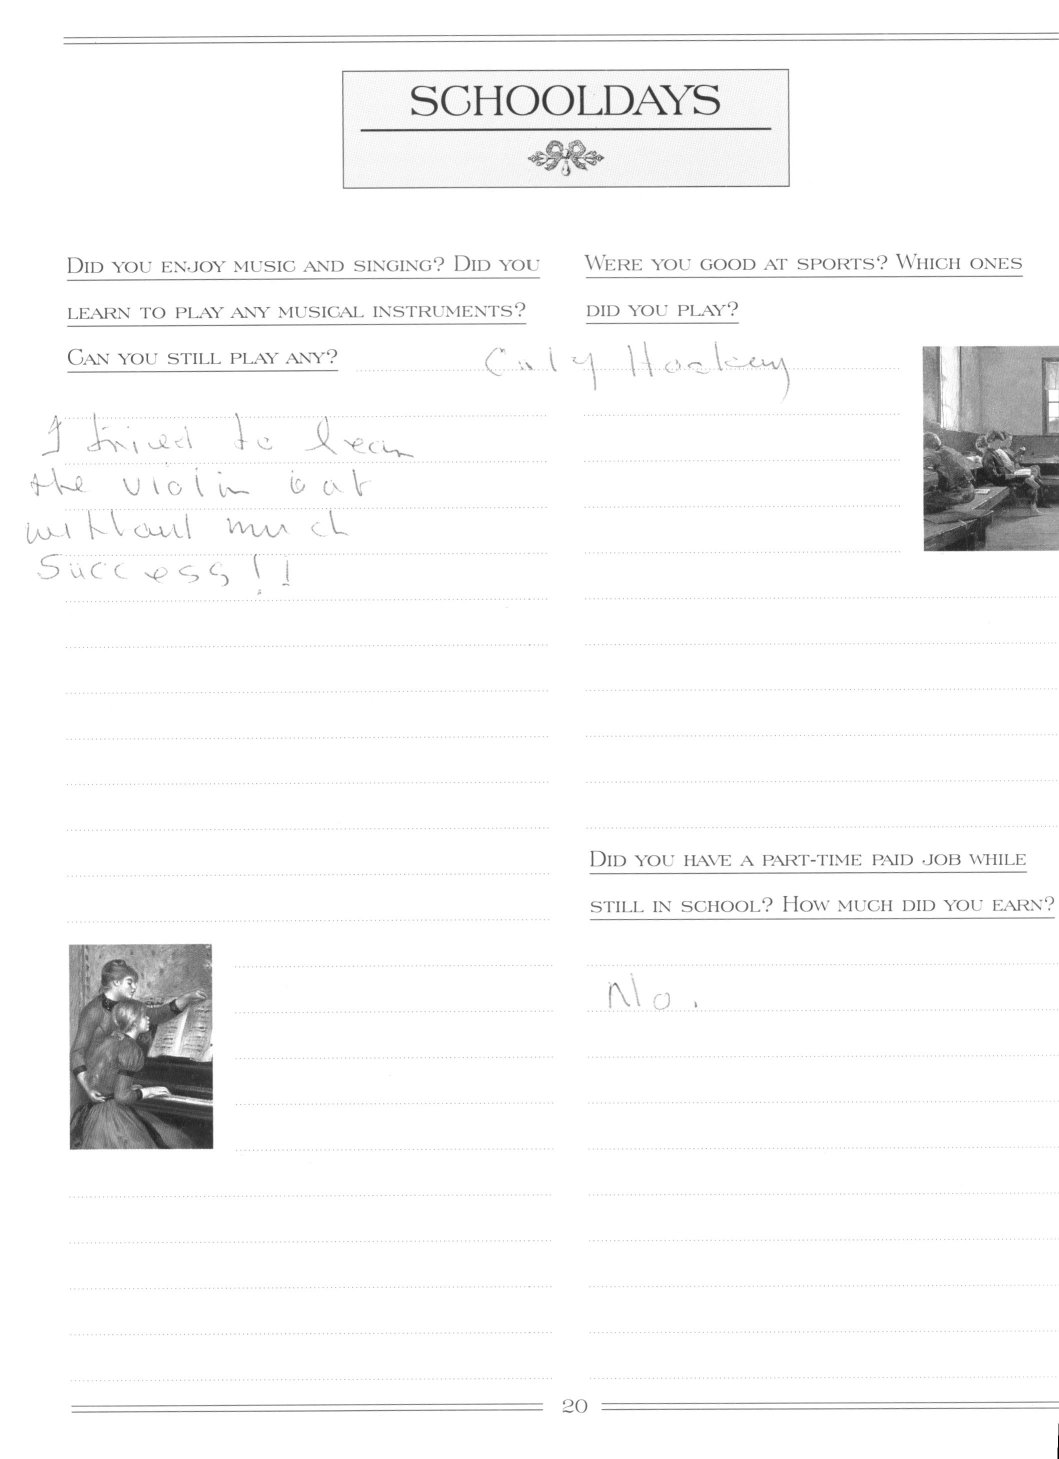 SCHOOLDAYS
DID YOU ENJOY MUSIC AND SINGING? DID YOU
LEARN TO PLAY ANY MUSICAL INSTRUMENTS?
CAN YOU STILL PLAY ANY?
I tried to lean
the violin but
without much
success!!
WERE YOU GOOD AT SPORTS? WHICH ONES
DID YOU PLAY?
Only Hockey
DID YOU HAVE A PART-TIME PAID JOB WHILE
STILL IN SCHOOL? HOW MUCH DID YOU EARN?
No.
20